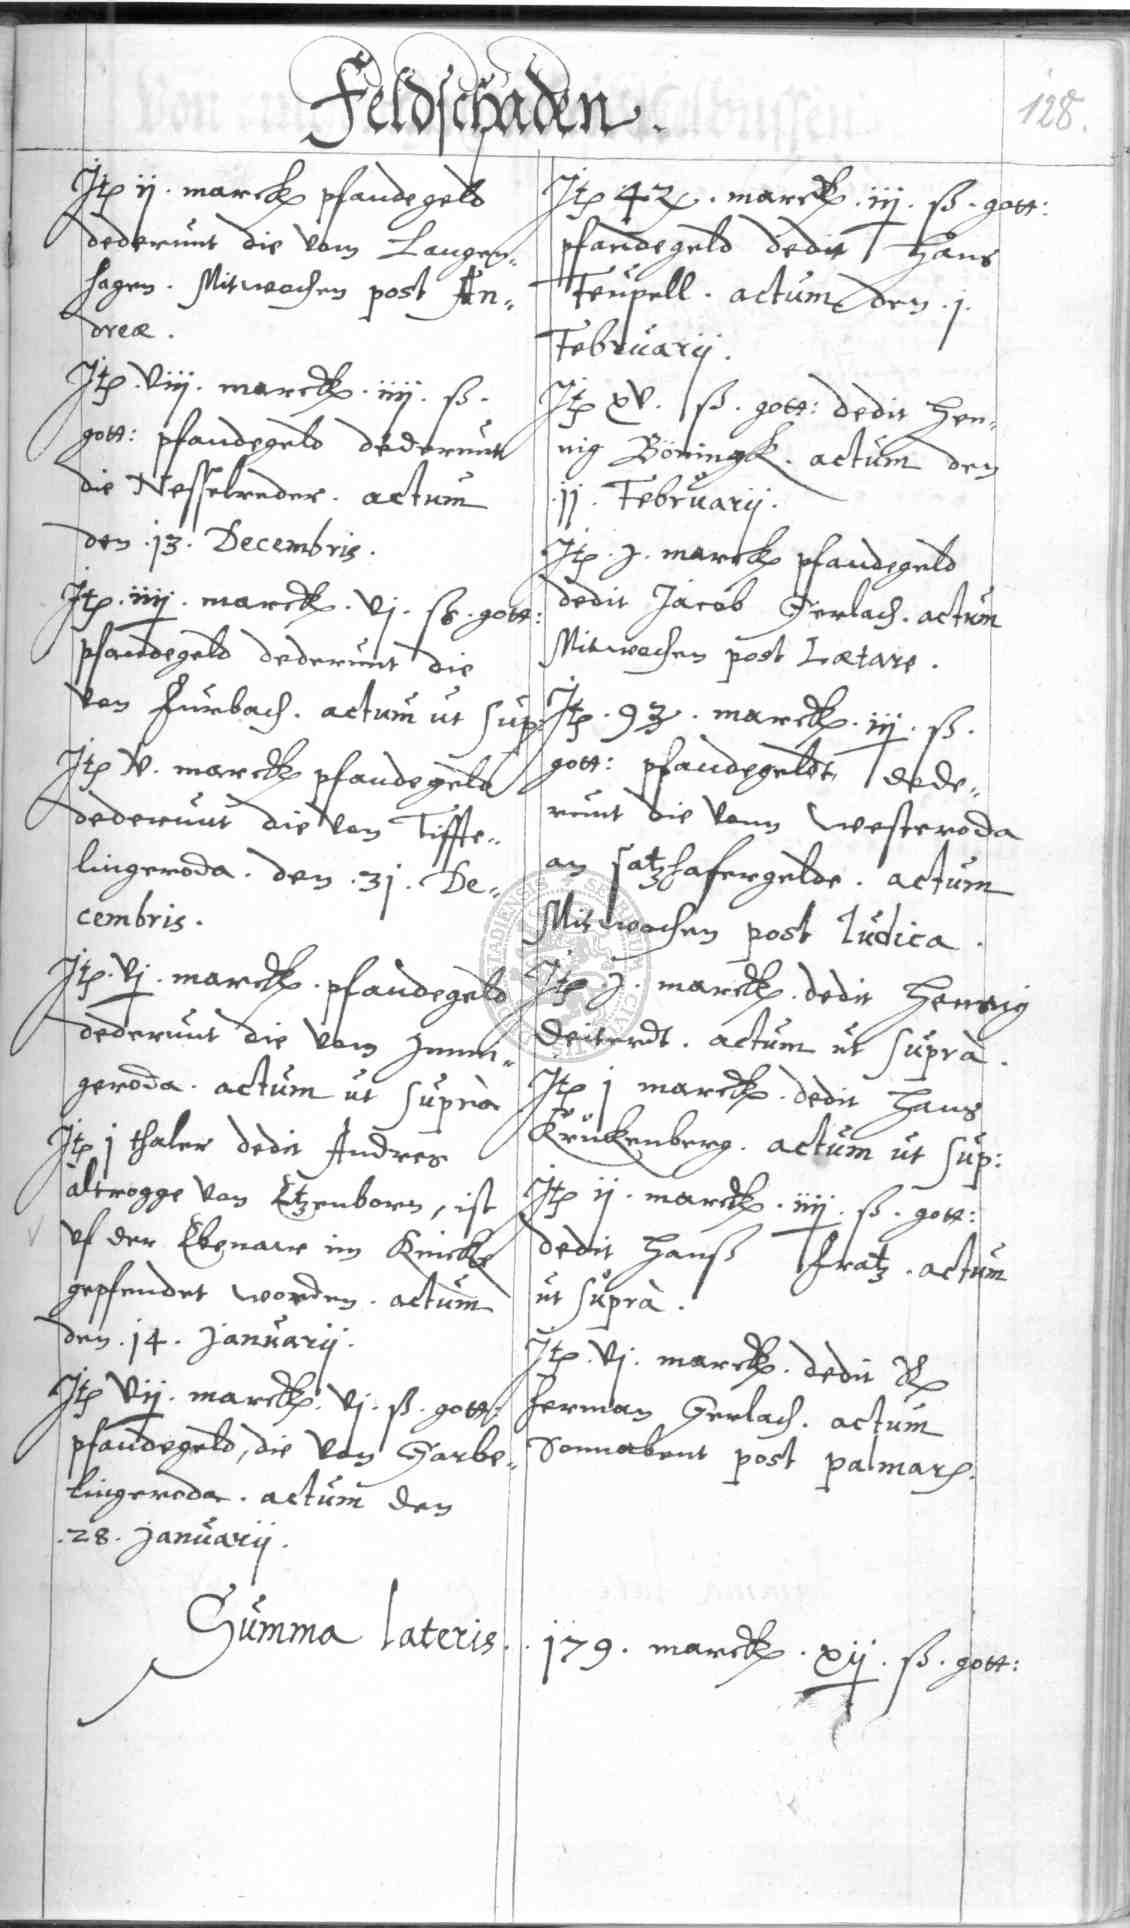 Feldschaden.
128.
Itp ij. marck pfandegeld
dederunt die vom Langen=
hagen. Mitwochen post An=
dreæ.
Itp. viij. marck. iiij. ß.
gott: pfandegeld dederunt
die Nesselreder. actum
den .13. Decembris.
Itp. iiij. marck. vj. ß. gott:
pfandegeld dederunt die
von Furbach. actum ut sup:
Itp v. marck pfandegeld
dederunt die von Tiffte=
lingeroda. den .31. De=
cembris.
Itp. vj. marck. pfandegeld
dederunt die vom Immi=
geroda. actum ut suprà
Itp j thaler dedit Andres
altrogge von Etzenborn, ist
uf der Ebenaw im
gepfendet worden. actum
den .14. Januarij.
Itp vij. marck. vj. ß. gott:
pfandegeld, die von Garbe=
lingeroda. actum den
.28. Januarij.
Itp 42. marck. iij. ß. gott:
pfandegeld dedit Hans
Teupell. actum den .j.
Februarij.
Itp xv. ß. gott: dedit Hen=
nig Böningk. actum den
.11. Februarij.
Itp. j. marck pfandegeld
dedit Jacob Gerlach. actum
Mitwochen post Lætare.
Itp. 93. marck. iij. ß.
gott: pfandegeldt dede=
runt die vonn Westeroda
an satzhafergelde. actum
Mitwochen post Iudica.
Itp j. marck. dedit Hennig
Deiterdt. actum ut suprà.
Itp j marck. dedit Hans
Kruckenberg. actum ut sup:
Itp ij. marck. iiij. ß. gott:
dedit Hanß Fratz. actum
ut suprà.
Itp. vj. marck. dedit
Herman Gerlach. actum
Sonnabent post palmar.
Summa lateris. . 179. marck. xij. ß. gott: